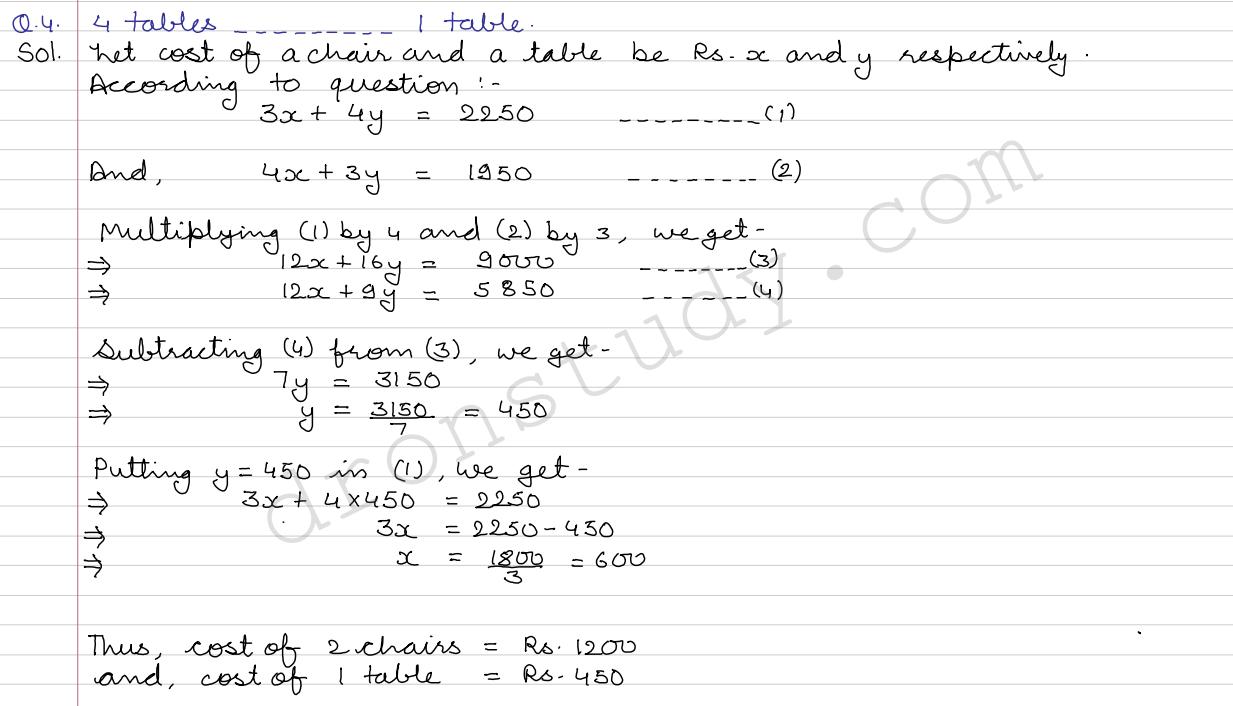 Q.4. 4 tables --------- 1 table.
Sol. Let cost of a chair and a table be Rs. x and y respectively.
According to question :-
3x + 4y = 2250 ---------(1)
And, 4x + 3y = 1950 -------- (2)
Multiplying (1) by 4 and (2) by 3, we get -
⇒ 12x + 16y = 9000 --------(3)
⇒ 12x + 9y = 5850 ------(4)
Subtracting (4) from (3), we get -
⇒ 7y = 3150
⇒ y = 3150/7 = 450
Putting y = 450 in (1), we get -
⇒ 3x + 4×450 = 2250
⇒ 3x = 2250 - 450
⇒ x = 1800/3 = 600
Thus, cost of 2 chairs = Rs. 1200
and, cost of 1 table = Rs. 450
dronstudy.com